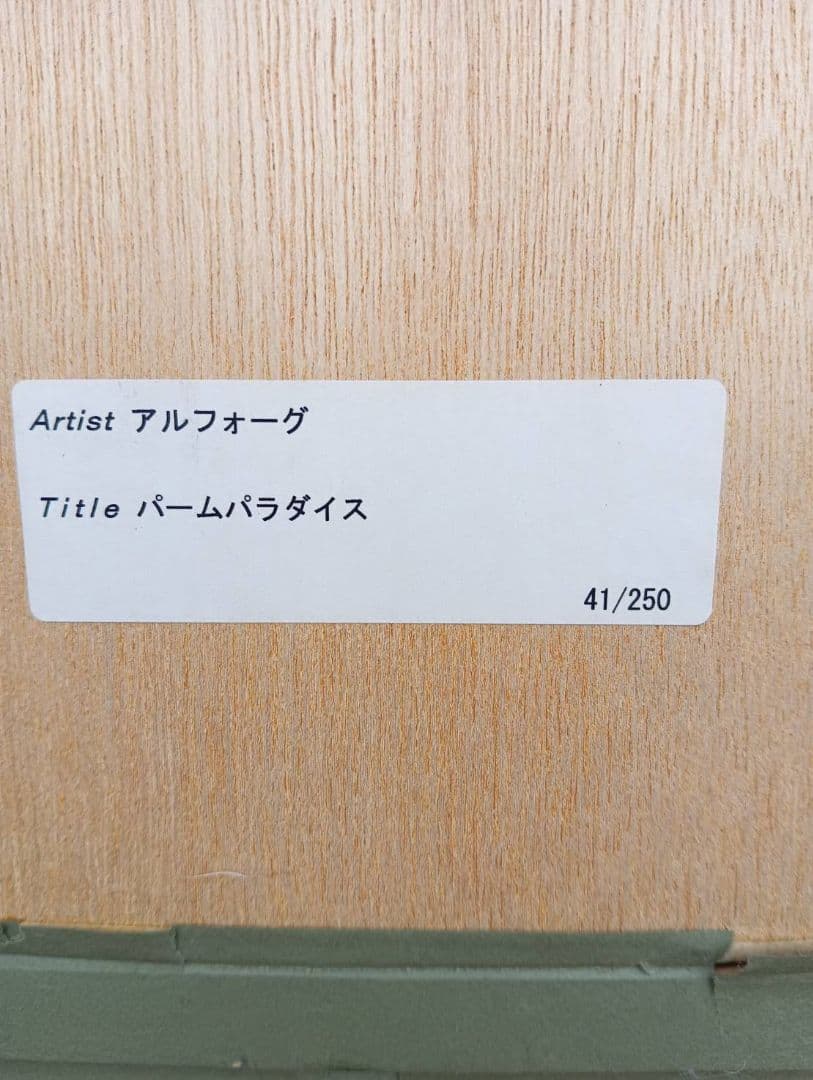 Artist アルフォーグ
Title パームパラダイス
41/250